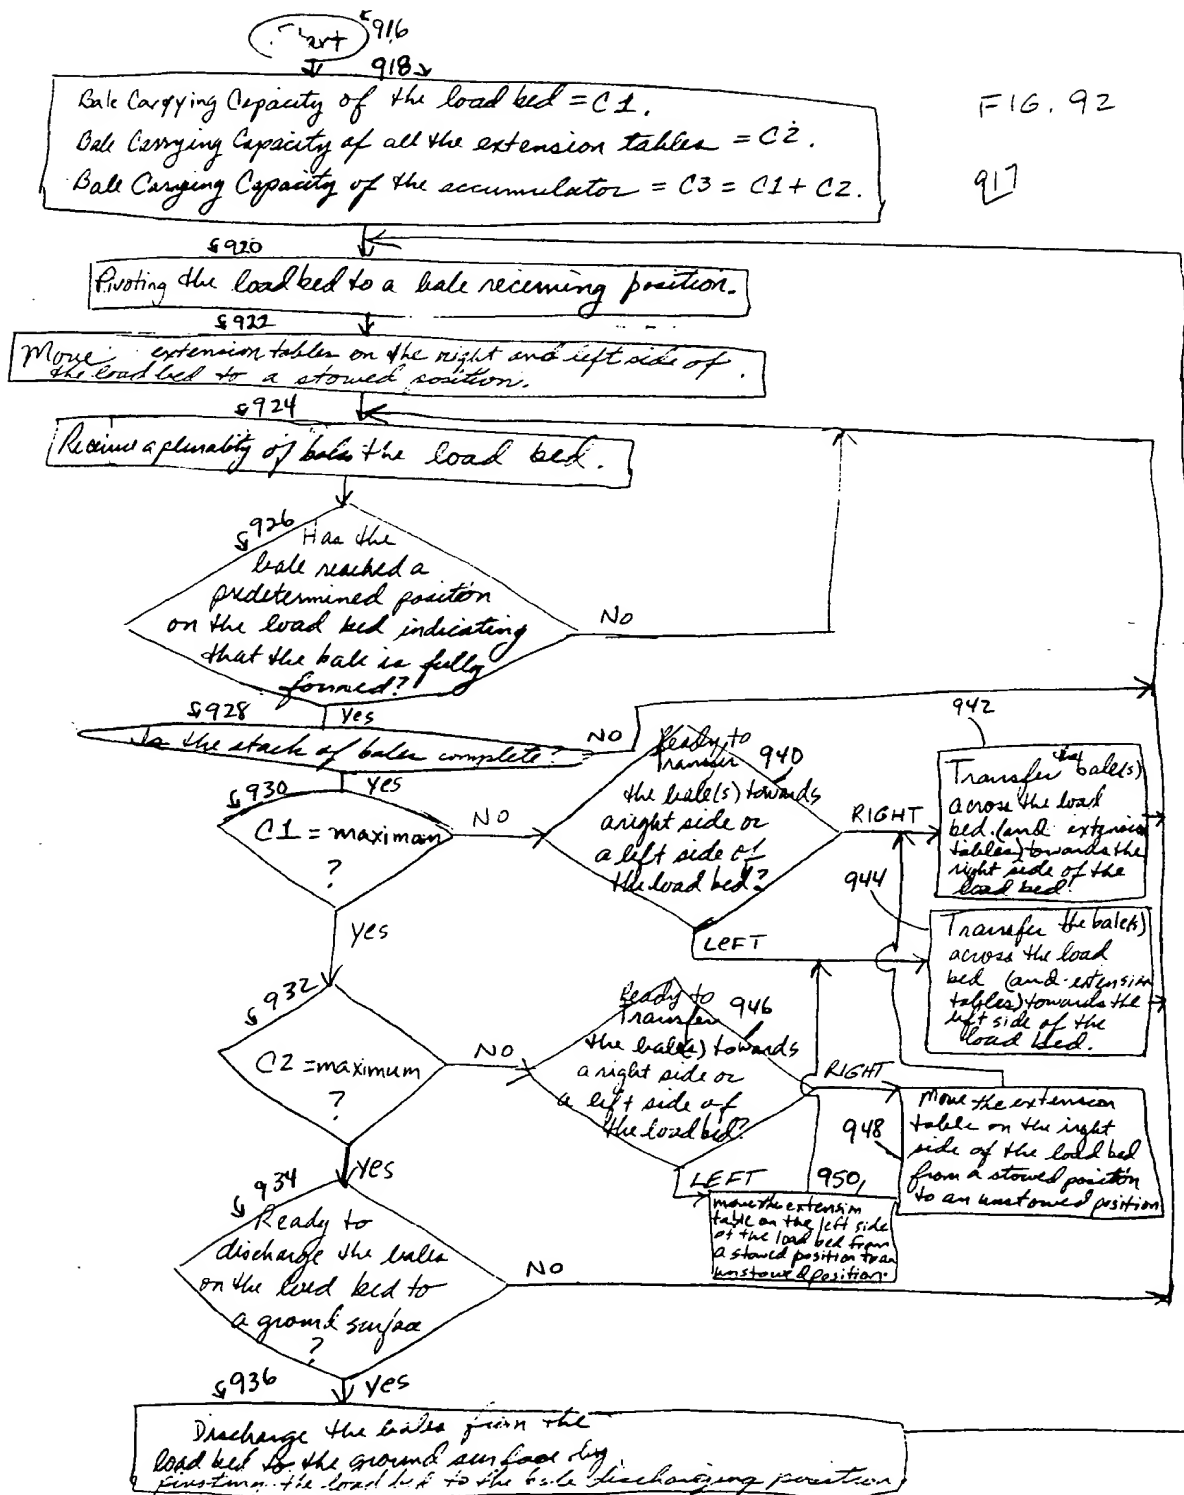 Start 916
918
FIG. 92
917
Bale Carrying Capacity of the load bed = C1.
Bale Carrying Capacity of all the extension tables = C2.
Bale Carrying Capacity of the accumulator = C3 = C1 + C2.
920
Pivoting the load bed to a bale receiving position.
922
Move extension tables on the right and left side of
the load bed to a stowed position.
924
Receive a plurality of bales the load bed.
926
Has the
bale reached a
predetermined position
on the load bed indicating
that the bale is fully
formed?
NO
Yes
928
Is the stack of bales complete?
NO
Yes
930
C1 = maximum
?
NO
Yes
Ready to
Transfer 940
the bale(s) towards
a right side or
a left side of
the load bed?
RIGHT
LEFT
942
Transfer the bale(s)
across the load
bed (and extension
tables) towards the
right side of the
load bed.
944
Transfer the bale(s)
across the load
bed (and extension
tables) towards the
left side of the
load bed.
932
C2 = maximum
?
NO
Yes
Ready to
Transfer 946
the bale(s) towards
a right side or
a left side of
the load bed?
RIGHT
LEFT
948
Move the extension
table on the right
side of the load bed
from a stowed position
to an unstowed position
950
move the extension
table on the left side
of the load bed from
a stowed position to an
unstowed position.
934
Ready to
discharge the bales
on the load bed to
a ground surface
?
NO
Yes
936
Discharge the bales from the
load bed to the ground surface by
pivoting the load bed to the bale discharging position